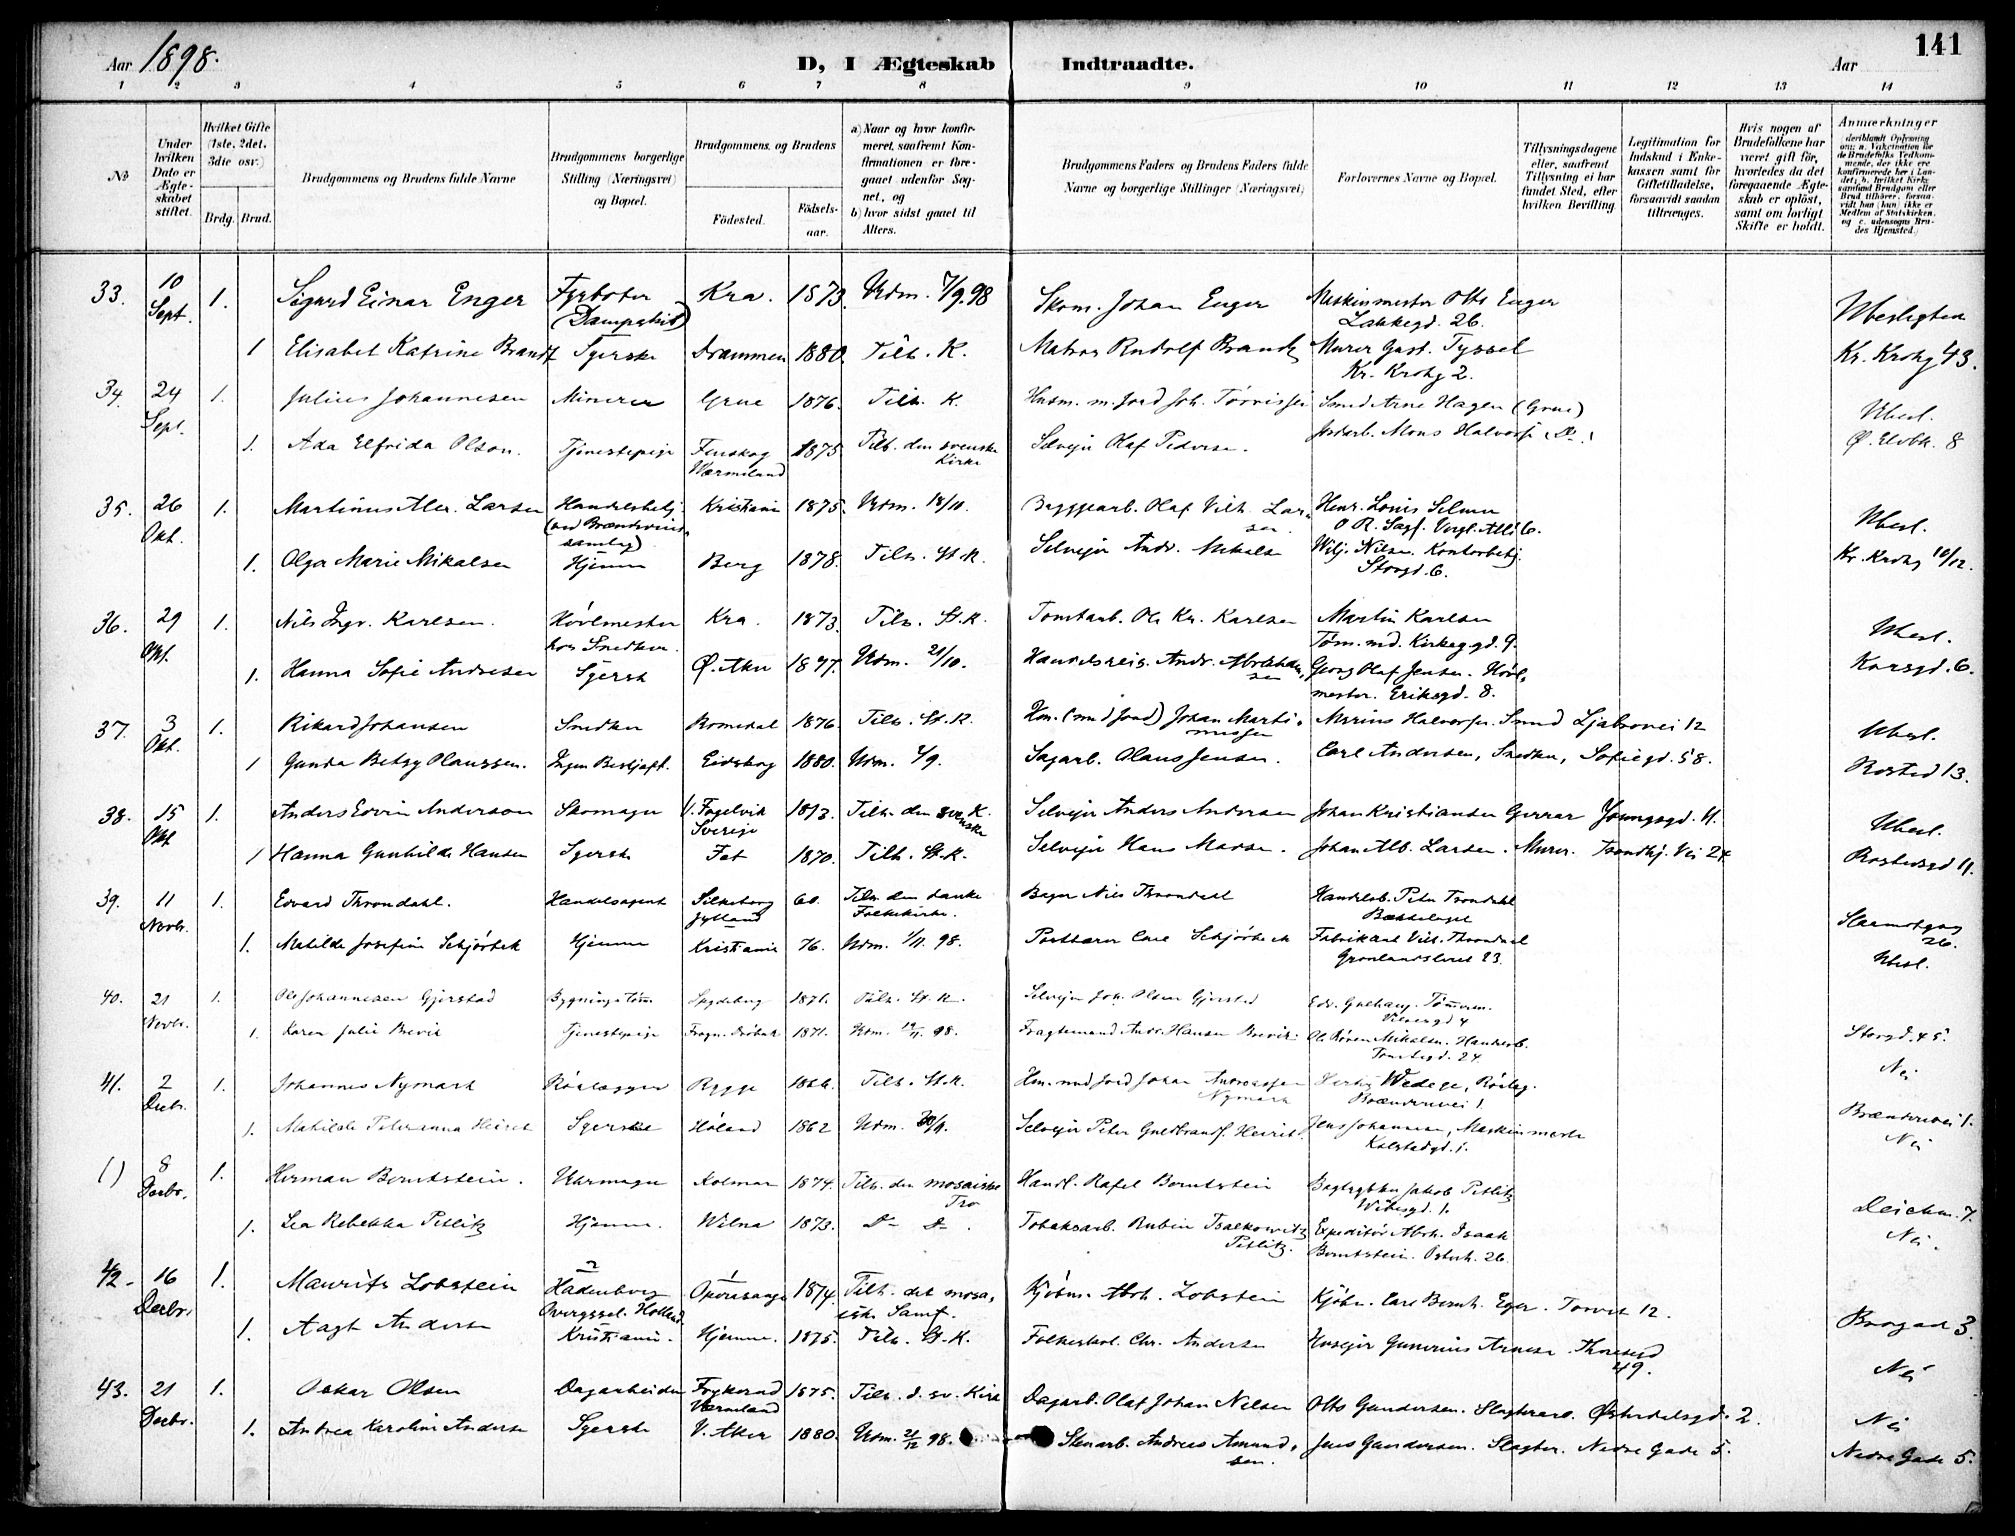 141
Aar 1898.
D, I Ægteskab Indtraadte.
Aar
1 2 3 4 5 6 7 8 9 10 11 12 13 14
No
Under hvilken Dato er Ægteskabet stiftet.
Hvilket Gifte (1ste, 2det, 3die osv.)
Brdg. Brud.
Brudgommens og Brudens fulde Navne
Brudgommens borgerlige Stilling (Næringsvei) og Bopæl.
Brudgommens og Brudens
Födested. Födselsaar.
a) Naar og hvor konfirmeret, saafremt Konfirmationen er foregaaet udenfor Sognet, og
b) hvor sidst gaaet til Alters.
Brudgommens Faders og Brudens Faders fulde Navne og borgerlige Stillinger (Næringsvei)
Forlovernes Navne og Bopæl.
Tillysningsdagene eller, saafremt Tillysning ei har fundet Sted, efter hvilken Bevilling
Legitimation for Indskud i Enkekassen samt for Giftetilladelse, forsaavidt saadan tiltrænges.
Hvis nogen af Brudefolkene har været gift för, hvorledes da det foregaaende Ægteskab er oplöst, samt om lovligt Skifte er holdt.
Anmærkninger
33. 10 Sept. 1. Sigurd Einar Enger Fyrböter (Dampskib) Kra. 1873. Udm. 7/9.98 Skom. Johan Enger Maskinmester Otto Enger Lakkegd. 26. Ubeslægtea
1 Elisabet Katrine Brandt Syerske Drammen 1880. Tilh. K. Matros Rudolf Brandt Murer Gust. Tyssel Kr. Krohg 2. Kr. Krohg 43.
34. 24 Sept. 1. Julius Johannesen Minerer Grue 1876. Tilh. K. Husm. m. Jord Joh. Smed Arne Hagen (Grue) Ubesl.
1. Ada Elfrida Olson. Tjenestepige Finskog Wærmland 1875 Tilh. den svenske Kirke Selveier Olaf Peterse. Jordarb. Mons Halvorse (Do.) Ø. Elvbk. 8
35. 26 Okt. 1. Martinus Alex. Larsen Handelsbetj. (ved Brændevinssamlag) Kristiania 1875. Udm. 18/10. Byggearb. Olaf Vilh. Larsen Henr. Louis Ubesl.
1. Olga Marie Mikalsen Hjemme Berg 1878. Tilh. St. K. Selveier Andr. Mikalse Wilj. Nilsen. Kontorbetj. Storgd. 6. Kr. Krohg 10/12.
36. 29 Okt. 1. Nils Ingv. Karlsen. Hövlmester hos Snedker. Kra. 1873. Tilh. St. K. Tomtarb. Ole Kr. Karlsen Martin Karlsen Töm.md. Kirkeggd. 9. Ubesl.
1. Hanna Sofie Andresen Syersk Ø. Aker 1877. Udm. 21/10. Handelsreis. Andr. Abrahamsen Georg Olaf Jensen. Hövlmester. Eriksgd. 8. Korsgd. 6.
37. 3 Okt. 1. Rikard Johansen Snedker Romedal 1876. Tilh. St. K. Hm. (med Jord) Johan Martinussen Marius Halvorsen. Smed Ljabroveien 12 Ubesl.
1 Gunda Betsy Olaussen. Ingen Beskjæft. Eidskog 1880. Udm. 4/9. Sagarb. Olaus Jensen. Carl Andersen, Snedker, Sofiegd. 58. Rosted 13.
38. 15 Okt 1. Anders Edvin Anderson Skomager V. Fogelvik Sverige 1873. Tilh. den svenske K. Selveier Anders Andersen Johan Kristiansen Garver Youngsgd. 11. Ubesl.
1 Hanna Gunhilda Hansen Syersk Fet 1870. Tilh. St. K. Selveier Hans Madse. Johan Alb. Larsen. Murer. Trondhj. Vei 24 Rostedsgd 11.
39. 11 Novb. 1. Edvard Throndahl. Handelsagent Silkeborg Jylland 60. Tilh. den danske Folkekirke. Bager Nils Throndahl Handelsb. Peter Trondahl Bækkelaget 26.
1. Matilde Josefine Schjörbek Hjemme Kristiania 76. Udm. 1/11. 98. Postbærer Carl Schjörbeck Fabrikant Vilh. Throndael Grønlandsleret 23. Ubesl.
40. 21 Novb. 1. Ole Johannesen Gjerstad Bygnings Töm. Spydeberg 1871. Tilh. St. K. Selveier Joh. Olsen Gjerstad Edv. Tömrerm. Storgd. 45.
1. Karen Julie Brevik Tjenestepige Frogn. Dröbak 1871. Udm. 19/11. 98. Fragtemand Andr. Hansen Brevik. Ole Mikalsen. Handelsb. Tomtegd. 24. Nei
41. 2 Decb. 1. Johannes Nymark Rörlægger Rygge 1866. Tilh. St. K. Hm. med Jord Johan Andreassen Nymark Wedege, Rörlæg. Brænderivei 1. Brænderivei 1.
1. Mathilde Peteranna Heiret Syerske Höland 1862 Udm. 30/11. Selveier Peter Guldbrands. Heiret. Jens Johannesen, Maskinmester Kalstadgd. 1. Nei
() 8 Decbr. 1. Herman Borntstein. Uhrmager Kolmar 1874. Tilh. den mosaiske Tro Handl. Rafel Borntstein Jakob Petlitz Deichm. 7.
1. Lea Rebekka Petlitz Hjemme. Wilna 1873. Do Do. Tobaksarb. Rubin Tsalkowitz Petlitz. Expeditör Abrh. Isaak Borntstein. Osterh. 26. Nei.
42. 16 Decbr. 1. Maurits Lobstein Hadenborg Overyssel. Holland 1874. Tilh. det mosaisk. Samf. Kjöbm. Abrh. Lobstein Kjöbm. Carl Bernh. Eger. Torvet 12. Brogad 3.
1. Aagt Anderse Kristiania. Hjemme. 1875. Tilh. St. K. Folkeskol. Chr. Anderse Huseier Gunerius Arnese. Thoresgd 49. Nei
43. 21 Decbr. 1. Oskar Olsen Dagarbeider Frykerud Værmland 1875. Tilh. d. sv. Kirk Dagarb. Olaf Johan Nilsen Otto Gundersen. Slagterarb. Österdalsgd. 2. Nei
1. Andrea Karoline Anderse Syersk V. Aker 1880. Udm. 21/12 98. Stenarb. Andreas Amundsen. Jens Gundersen. Slagter. Nedre Gade 5. Nedre Gade 5.